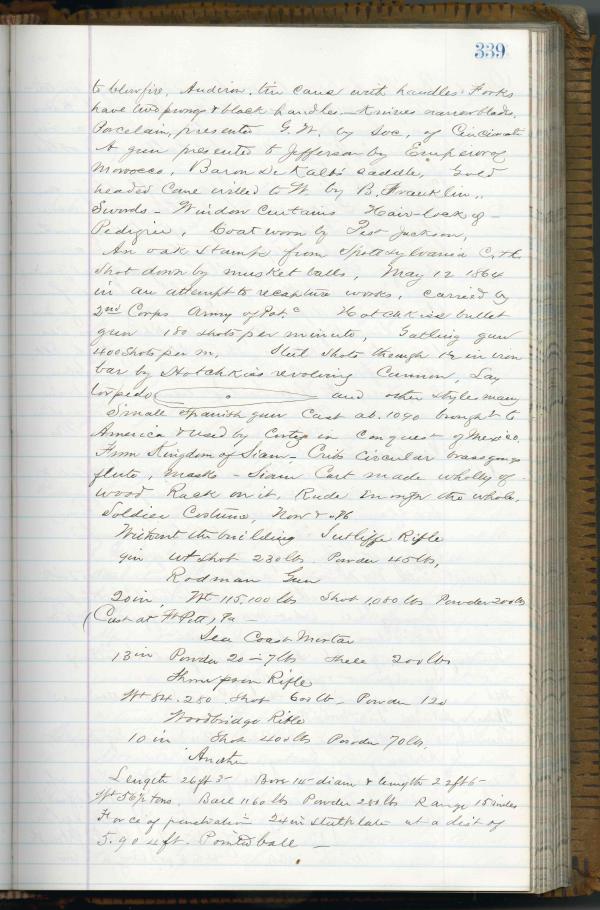 339
to blow fire, Andiron, tin cans with handles Forks
have two prongs & black handles - Knives narrow blades,
Porcelain, presented G. W. by Soc, of Cincinati
A gun presented to Jefferson by Emperor of
Morocco, Baron De Kalb's saddle, Gold
headed Cane willed to W by B. Franklin,,
Swords - Window Curtains Hair-lock of -
Pedigree, Coat worn by Jackson,
An oak stump from Spottsylvania C. H.
shot down by musket balls, May 12 1864
in an attempt to recapture works, carried by
2nd Corps Army of Pot.c Hotchkiss bullet
gun 180 shots per minute, Gatling gun
400 shots per m, Steel shots through in iron
bar by Hotchkiss revolving Cannon, Lay
torpedo and other styles many
Small Spanish gun Cast ab. 1090 brought to
America & used by Cortez in conquest of Mexico.
From Kingdom of Siam - Cribs circular brass gongs
flute, masks - Siam Cart made wholly of -
wood Rack on it, Rude the whole,
Soldier Costume, Now & 76
Without the building Sutliffe Rifle
9 in Wt shot 230 lbs Powder 45 lbs,
Rodman Gun
20 in, Wt 115,100 lbs Shot 1,080 lbs Powder 200 lbs
(Cast at Ft Pitt, Pa -
Sea Coast Mortar
13 in Powder 20 - 7 lbs Shell 200 lbs
Thompson Rifle
Wt 84.280 Shot 600 lb - Powder 120
Woodbridge Rifle
10 in Shot 400 lbs Powder 70 lbs.
Another
Length 26 ft 3 - Bore 14 - diam & length 22 ft 6 -
Wt 56½ tons, Ball 1160 lbs Powder lbs Range 15 miles
Force of penetration 24 in steel plate at a dist of
5.904 ft. Pointed ball -